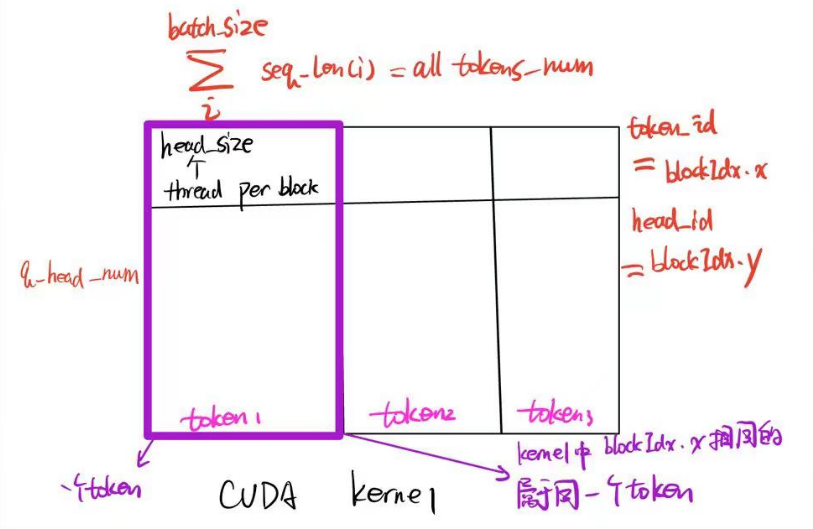 batch_size
∑ seq_len(i) = all tokens_num
i
head_size
个
thread per block
token_id
= blockIdx.x
head_id
= blockIdx.y
q_head_num
token1
token2
token3
一个token
CUDA kernel
kernel中 blockIdx.x相同的
属于同一个token